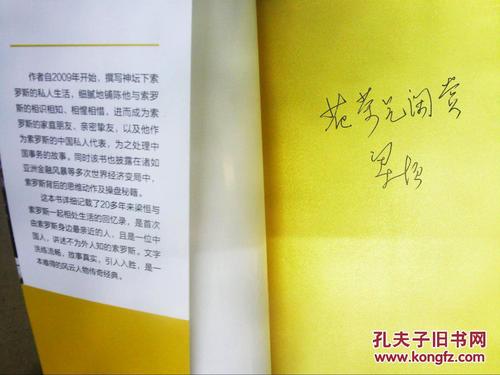 作者自2009年开始，撰写神坛下索
罗斯的私人生活，细腻地铺陈他与索罗
斯的相识相知、相惺相惜，进而成为索
罗斯的家庭朋友、亲密挚友，以及他作
为索罗斯的中国私人代表，为之处理中
国事务的故事。同时该书也披露在诸如
亚洲金融风暴等多次世界经济变局中，
索罗斯背后的思维动作及操盘秘籍。
这本书详细记载了20多年来梁恒与
索罗斯一起相处生活的回忆录，是首次
由索罗斯身边最亲近的人，且是一位中
国人，讲述不为外人知的索罗斯。文字
洗练流畅，故事真实，引人入胜，是一
本难得的风云人物传奇经典。
范荣兄阅赏
梁恒
孔夫子旧书网
www.kongfz.com